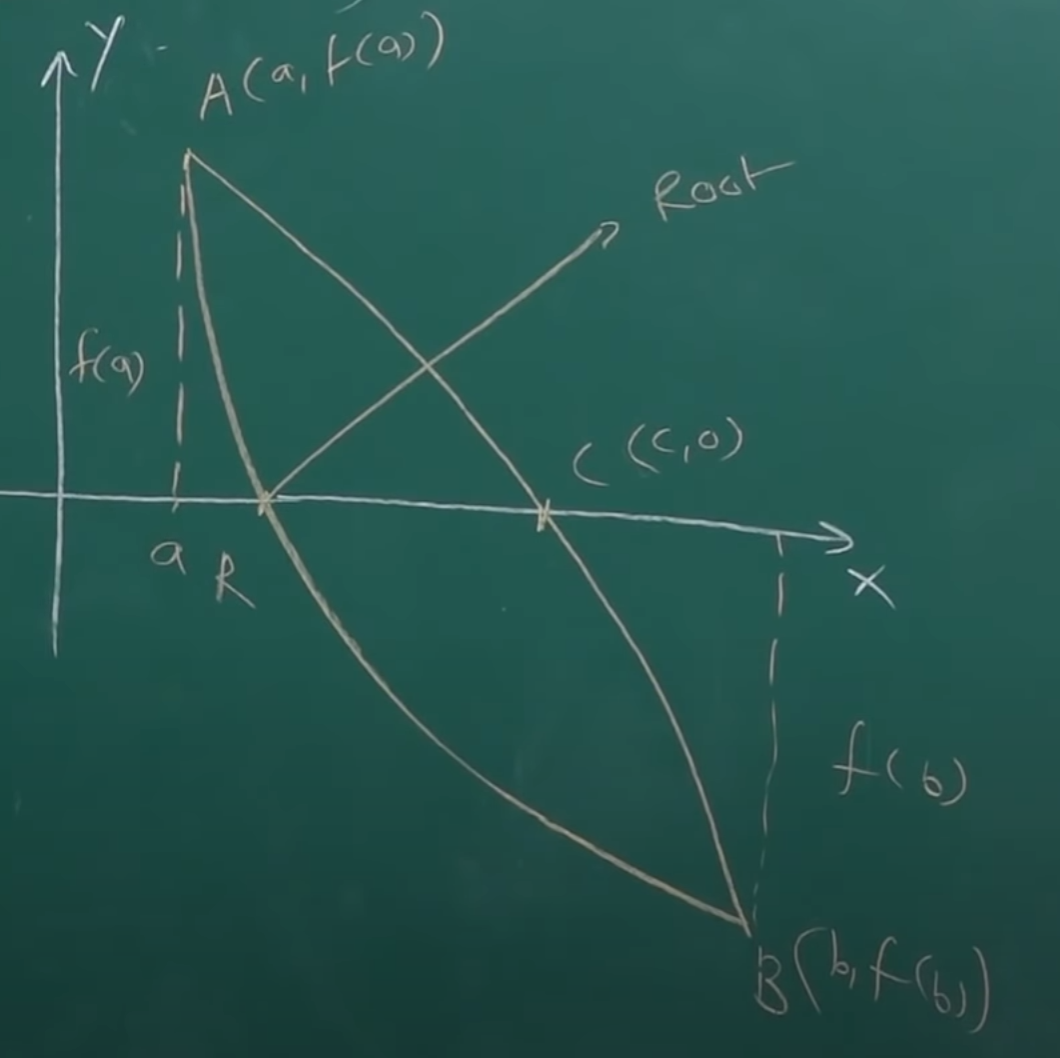 Y
A(a, f(a))
Root
f(a)
C (c,0)
a
R
X
f(b)
B(b, f(b))